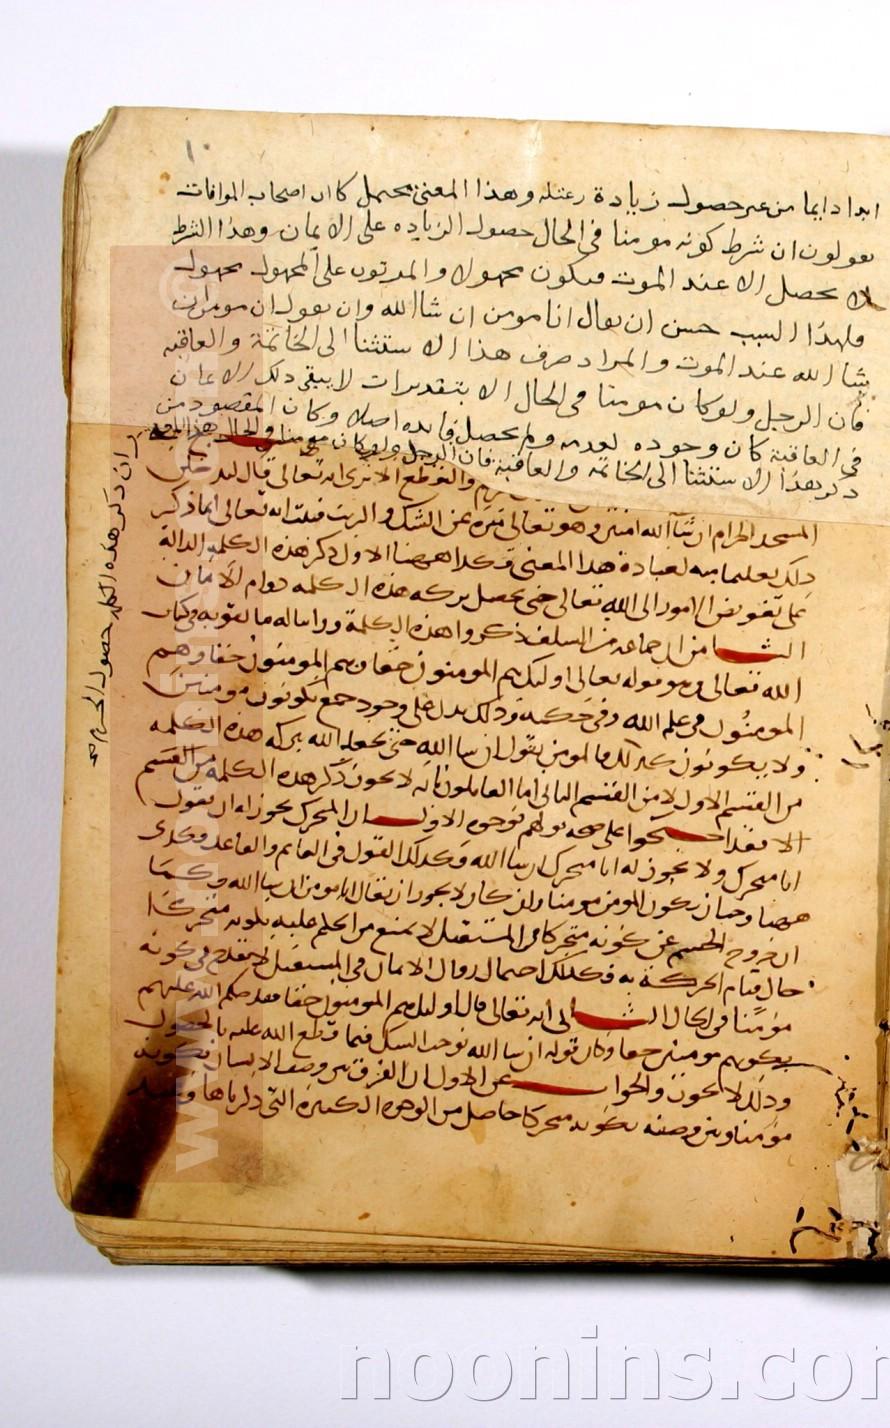 ١٠
ابدا دايما من غير حصول زيادة وعتله وهذا المعنى محتمل كا ان اصحاب الموافات
يقولون ان شرط كونه مومنا فى الحال حصول الزياده على الايمان وهذا الشرط
لا يحصل الا عند الموت فيكون مجهولا والموقوف على المجهول مجهول
فلهذا السبب حسن ان يقال انا مومن ان شا الله وان يقول ان مومن ان
شا الله عند الموت والمراد صرف هذا الاستثنا الى الخاتمة والعاقبه
فان الرجل ولو كان مومنا فى الحال الا بتقدير ان لا يبقى ذلك الايمان
فى العاقبة كان وجوده لعدمه ولم يحصل فايده اصلا وكان المقصود من
ذكر هذا الاستثنا الى الخاتمه والعاقبه فان الرجل ولو كان مومنا فى الحال
والقطع الا ترى انه تعالى قال لتدخلن
المسجد الحرام ان شآ الله امنين وهو تعالى منزه عن الشك والريب فثبت انه تعالى انما ذكر
ذلك تعليما منه لعباده هذا المعنى فكذا ههنا الاولى ذكر هذه الكلمه الدالة
على تفويض الامور الى الله تعالى حتى يحصل ببركه هذه الكلمه دوام الآيمان
الثامن ان جماعه من السلف ذكروا هذه الكلمة وراينا له ما يقويه فى كتاب
الله تعالى وهو قوله تعالى اوليك هم المومنون حقا وهم المومنون حقا وهم
المومنون فى علم الله وفى حكمه وذلك يدل على وجود جمع يكونون مومنين
ولا يكونون كذلك فالمومن يقول ان شا الله حتى يجعله الله ببركه هذه الكلمه
من القسم الاول لا من القسم الثانى اما القايلون بانه لا يجوز ذكر هذه الكلمه من القسم
الا فقد احتجوا على صحه قولهم بوجوه الاول ان المتحرك يجوز له ان يقول
انا متحرك ولا يجوز له انا متحرك ان شا الله وكذلك القول فى القايم والقاعد وكذى
ههنا وجب ان يكون المومن مومنا وان كان لا يجوز ان يقال انا مومن ان شا الله وكما
ان خروج الجسم عن كونه متحركا فى المستقبل لا يمنع من الحكم عليه بكونه متحركا
حال قيام الحركة به فكذلك احتمال زوال الايمان فى المستقبل لا يقدح فى كونه
مؤمنا فى الحال الثانى انه تعالى قال اوليك هم المومنون حقا فقد حكم الله عليهم
بكونهم مومنين حقا وكان قوله ان شا الله يوجب الشك فيما قطع الله عليه بالحصول
وذلك لا يجوز والجواب عن الاول ان الفرق بين وصف الانسان بكونه
مؤمنا وبين وصفه بكونه متحركا حاصل من الوجوه الكثيرة التى ذكرناها
ان ذكر هذه الكلمه حصول
www.noonins.com
noonins.com